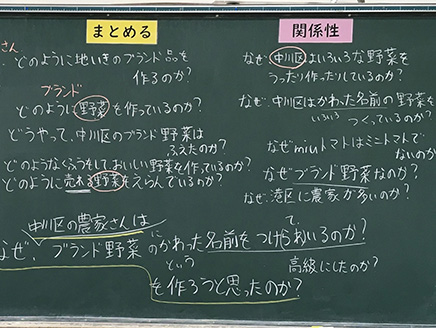 まとめる
さん
どのように地いきのブランド品を
作るのか?
ブランド
どのように野菜を作っているのか?
どうやって、中川区のブランド野菜は
ふえたのか?
どのようなくふうをしておいしい野菜を作っているのか?
どのように売れる野菜をえらんでいるのか?
関係性
なぜ中川区はいろいろな野菜を
うったり作ったりしているのか?
なぜ、中川区はかわった名前の野菜を
いろいろ
つくっているのか?
なぜmiuトマトはミニトマトで
ないのか
なぜブランド野菜なのか?
なぜ、港区に農家が多いのか?
中川区の農家さんは
なぜ、ブランド野菜にかわった名前をつけているのか?
て、
という
高級にしたのか?
を作ろうと思ったのか?